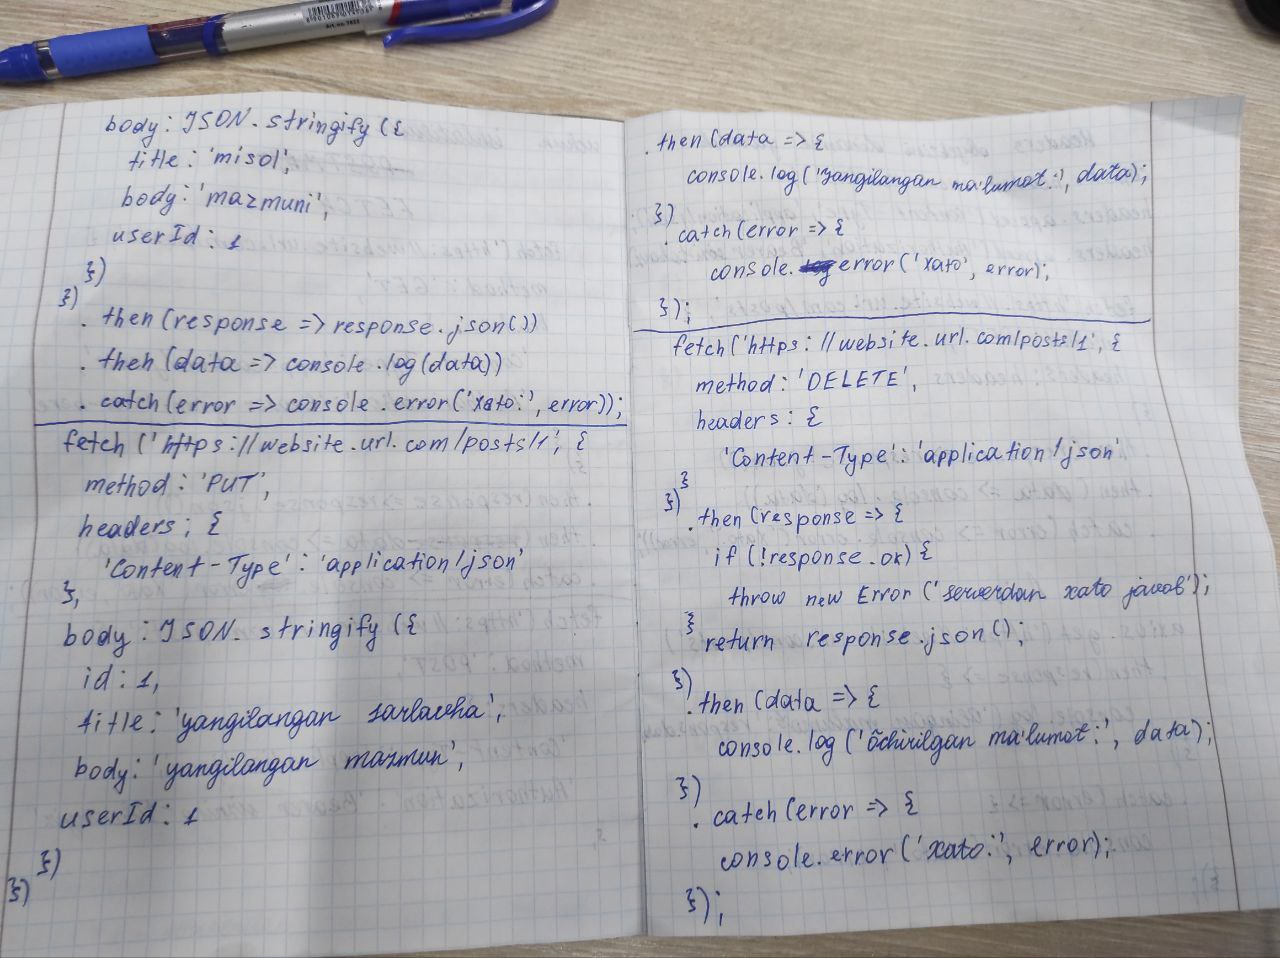 body: JSON.stringify({
title: 'misol',
body: 'mazmuni',
userId: 1
})
})
.then(response => response.json())
.then(data => console.log(data))
.catch(error => console.error('xato:', error));
fetch('https://website.url.com/posts/1', {
method: 'PUT',
headers: {
'Content-Type': 'application/json'
},
body: JSON.stringify({
id: 1,
title: 'yangilangan sarlavha',
body: 'yangilangan mazmun',
userId: 1
})
})
.then(data => {
console.log('yangilangan ma'lumot:', data);
})
.catch(error => {
console.error('xato', error);
});
fetch('https://website.url.com/posts/1', {
method: 'DELETE',
headers: {
'Content-Type': 'application/json'
}
})
.then(response => {
if (!response.ok) {
throw new Error('serverdan xato javob');
}
return response.json();
})
.then(data => {
console.log('õchirilgan ma'lumot:', data);
})
.catch(error => {
console.error('xato:', error);
});